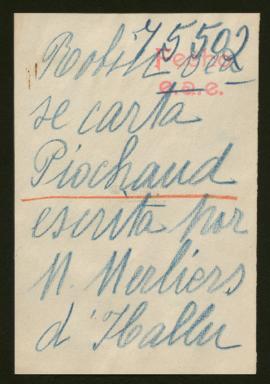 75502
Robin Vea
Fecha
e.a.e.
se carta
Piochaud
escrita por
N. Merliers
d'Hallu